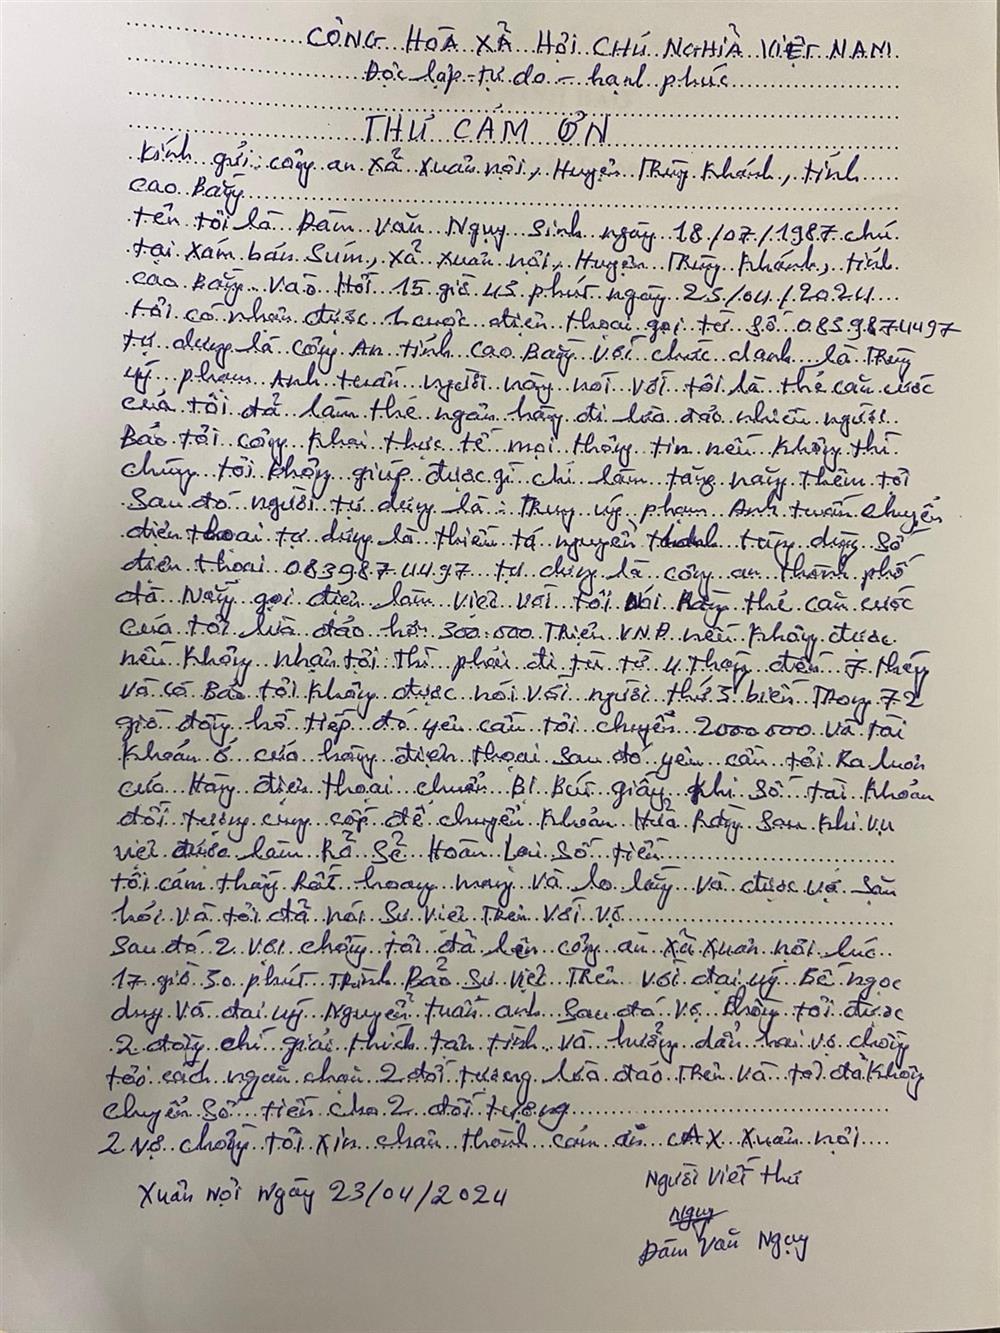 CÔNG HOÀ XẢ HỘI CHÚ NGHIẢ VIỆT NAM
Độc lập - tự do - hạnh phúc
THƯ CÁM ƠN
Kính gửi: công an xẫ xuân nội, Huyện Trùng Khánh, tính
cao Bằng
tên tôi là Đàm Văn Ngụy Sinh ngày 18/07/1987 chú
tại xóm bán Súm, xã xuân nội, Huyện Trùng Khánh, tính
cao Bằng Vaò Hồi 15 giờ 43 phút ngày 23/04/2024
tôi có nhận được 1 cuộc điện thoại gọi từ số 0839874497
tự dưng là công An tính cao Bằng với chức danh là Trung
uý phạm Anh tuấn người này nói với tôi là thẻ căn cước
cúa tôi đả làm thẻ ngân hàng đi lừa đảo nhiều người
Báo tôi công khai thực tế mọi thông tin nếu không thì
chúng tôi không giúp được gì chí làm tăng nặng thêm tôi
Sau đó người tự dưng là: Trung uý phạm Anh tuấn chuyển
điện thoại tự dưng là thiếu tá nguyễn tùng dùng số
điện thoại 0839874497 tự dưng là công an thành phố
đà Nẵng gọi điện làm việc với tôi nói Rằng thẻ căn cước
cúa tôi lừa đảo hơn 300.000 Triện VNĐ nếu không được
nếu không nhận tội thì phải đi tù từ 4 tháng đến 7 tháng
và có Báo tôi không được nói với người thứ 3 biến Trong 72
giờ đồng hồ tiếp đó yêu cầu tôi chuyển 2000000 và tài
khoán ố cúa hàng điện thoại sau đó yêu cầu tôi Ra luôn
cúa Hàng điện thoại chuẩn Bị Bút giấy ghi Số tài khoản
đối tượng cung cấp để chuyển khoản Hứa Rằng sau khi vụ
việc được làm Rẳ Sẽ Hoàn Lại Số tiền
tôi cám thấy Rất hoang mang và lo lắng và được vợ sang
hỏi và tôi đả nói Sự việc Trên với vợ
Sau đó 2 vợ chồng tôi đả lên công an xẫ Xuân nội lúc
17 giờ 30 phút Trình Báo Sự việc Trên với đại uý Bế ngọc
duy và đại uý Nguyễn tuấn anh Sau đó vợ chồng tôi được
2 đồng chí giải thích tận tình và hướng dẫn hai vợ chồng
tôi cách ngăn chặn 2 đối tượng lừa đảo Trên và tôi đả không
chuyển số tiền cho 2 đối tượng
2 vợ chồng tôi xin chân thành cám ơn CAX Xuân nội
Xuân Nội Ngày 23/04/2024
Người viết thư
Ngụy
Đàm Văn Ngụy